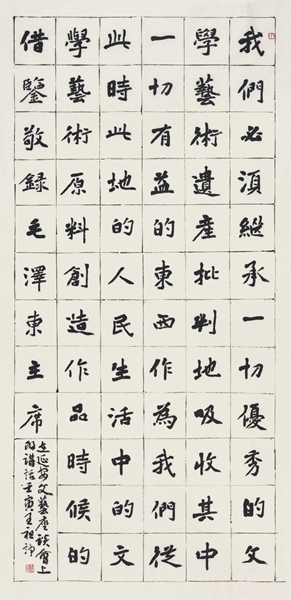 我們必須繼承一切優秀的文
學藝術遺產批判地吸收其中
一切有益的東西作為我們從
此時此地的人民生活中的文
學藝術原料創造作品時候的
借鑒敬録毛澤東主席
在延安文藝座談會上
的講話壬寅春